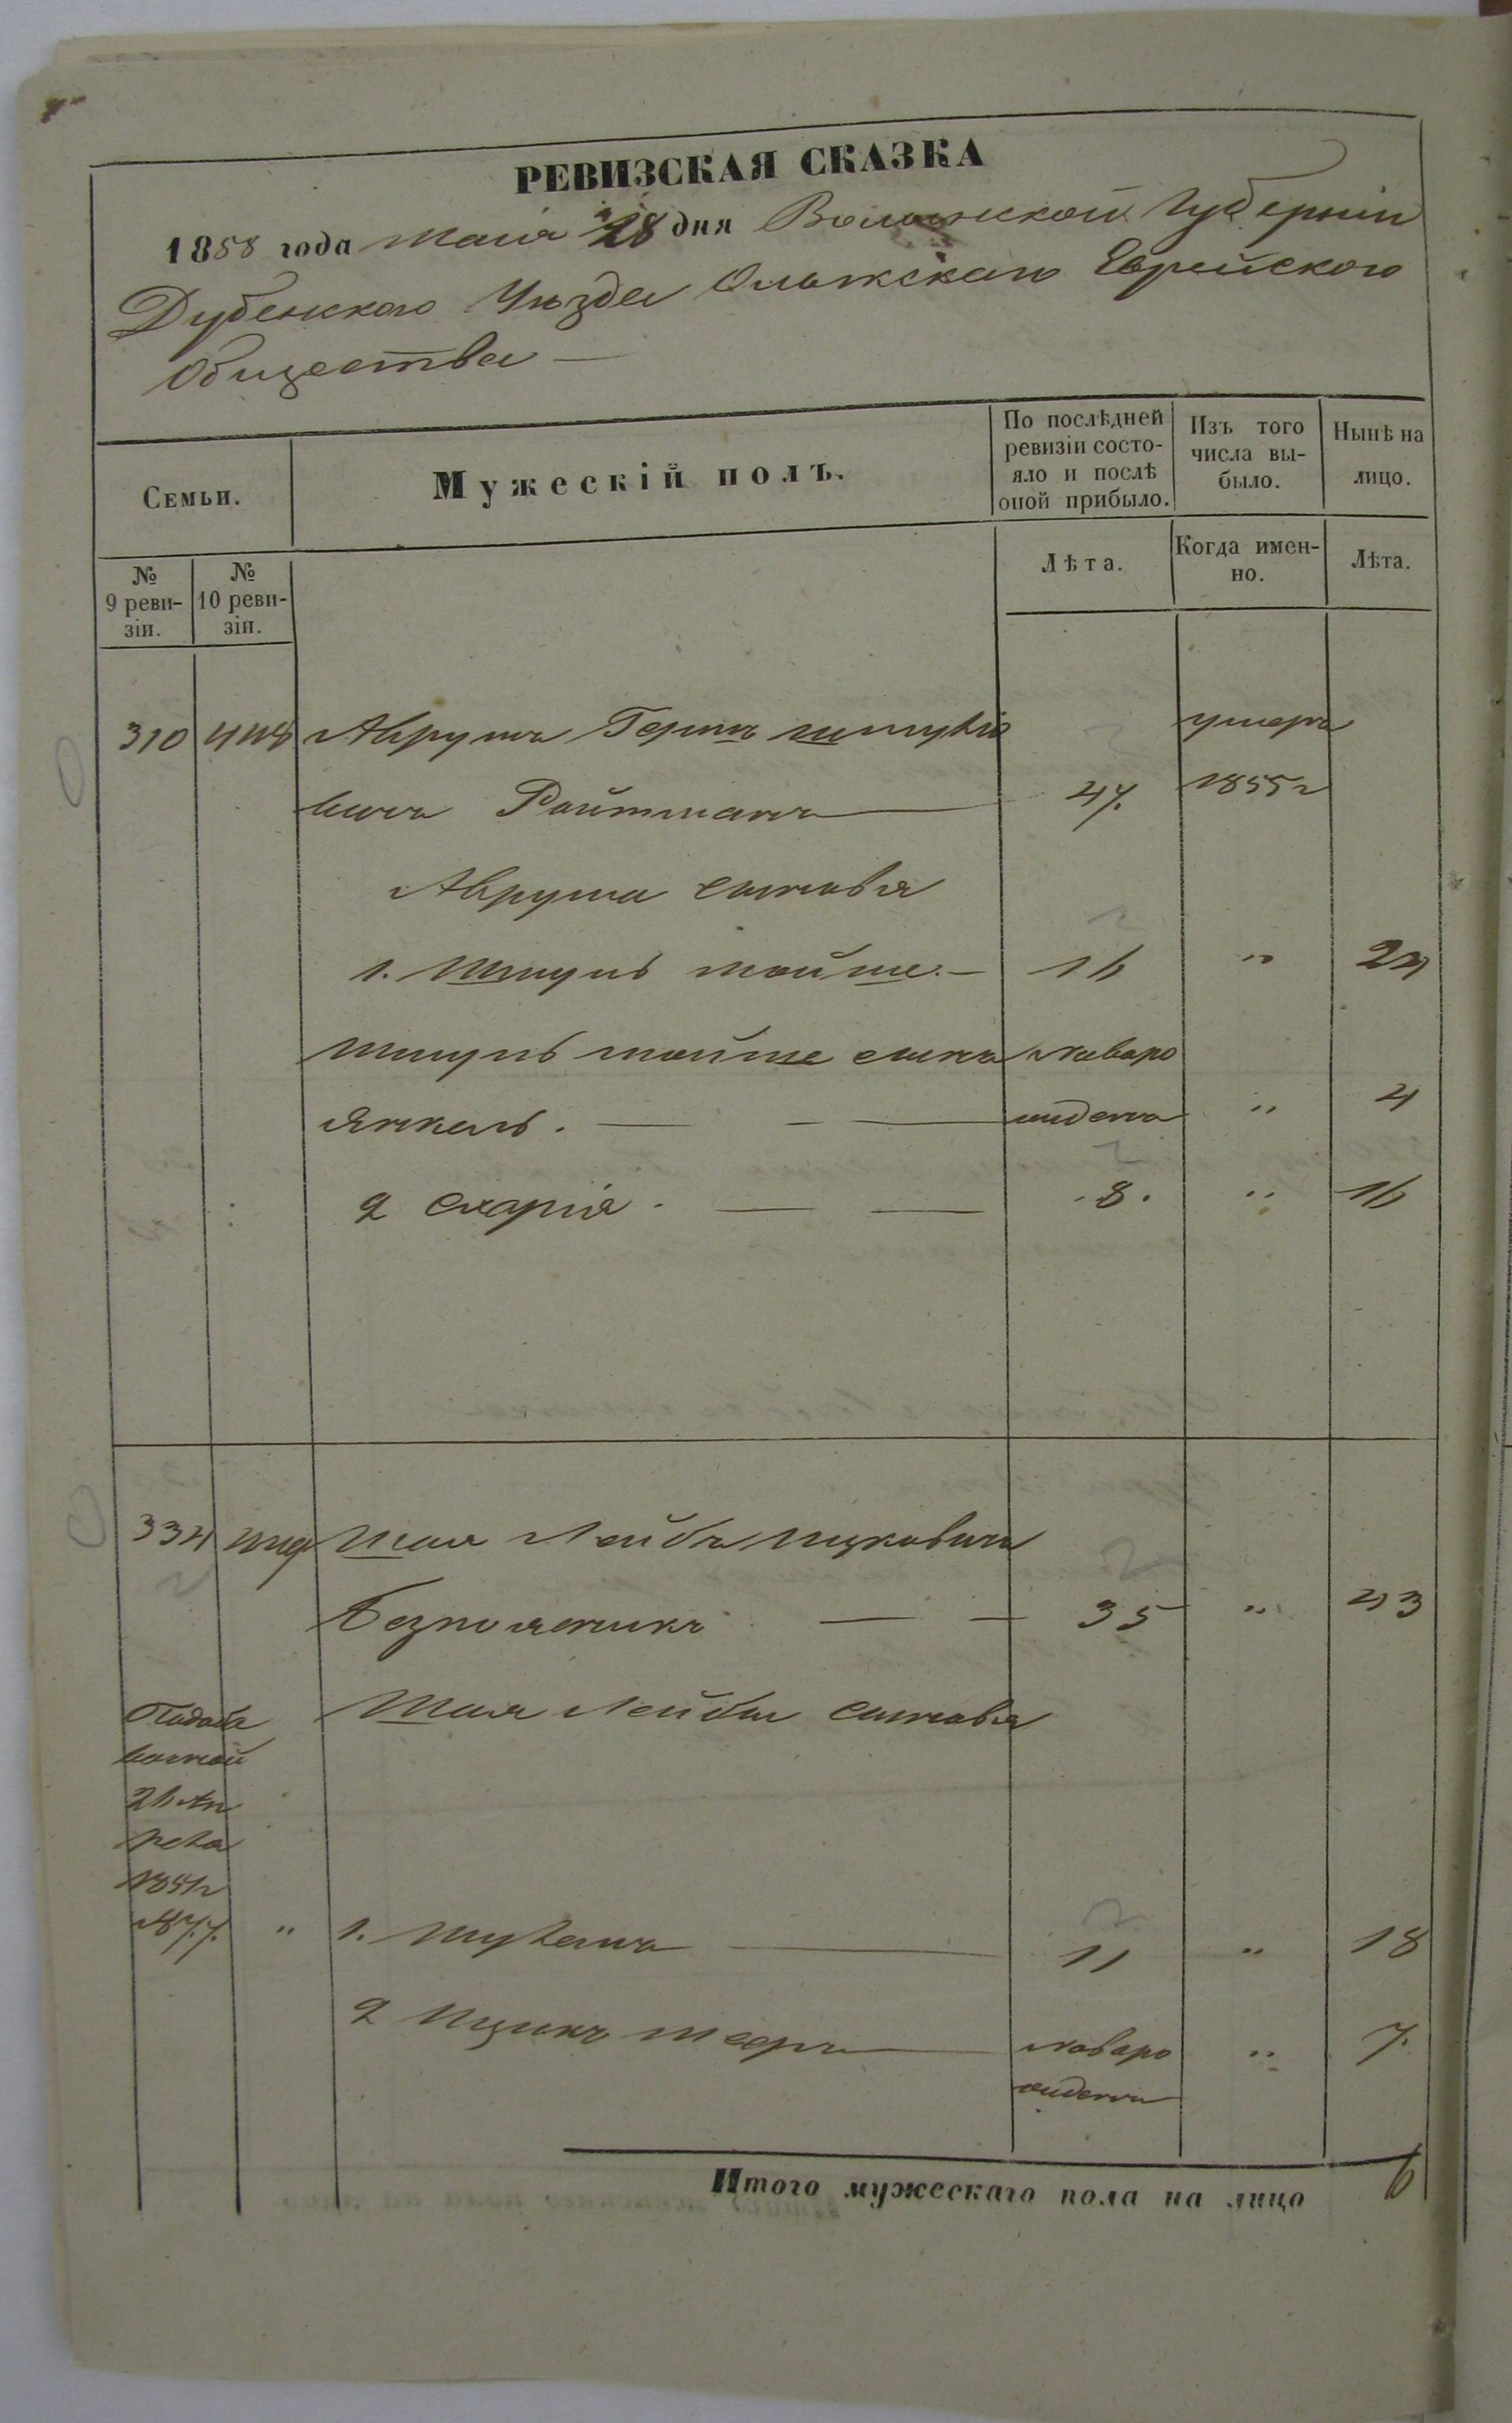 РЕВИЗСКАЯ СКАЗКА
1858 года Маія 28 дня Волынской Губерніи
Дубенскаго Уѣзда Олыкскаго Еврейскаго
Общества —
Семьи.
Мужескій полъ.
По послѣдней ревизіи состо-
яло и послѣ
оной прибыло.
Изъ того
числа вы-
было.
Нынѣ на
лицо.
№
9 реви-
зіи.
№
10 реви-
зіи.
Лѣта.
Когда имен-
но.
Лѣта.
310 Аврумъ Гершъ умеръ
вичъ Ройтманъ 47. 1855г
Аврума сыновья
1. Шмуль Мойше — 16 " 24
Шмуль Мойше сынъ новаро
Янкель. — — — жденъ " 4
2 Схарія. — — 8. " 16
334 Шая Лейба Ицковичъ
Безпоясникъ — — 35 " 43
Шая Лейбы сыновья
1851г
№ 77. " 1. — 11 " 18
2 Ицикъ Мееръ — новаро " 7.
жденъ
Итого мужескаго пола на лицо 6